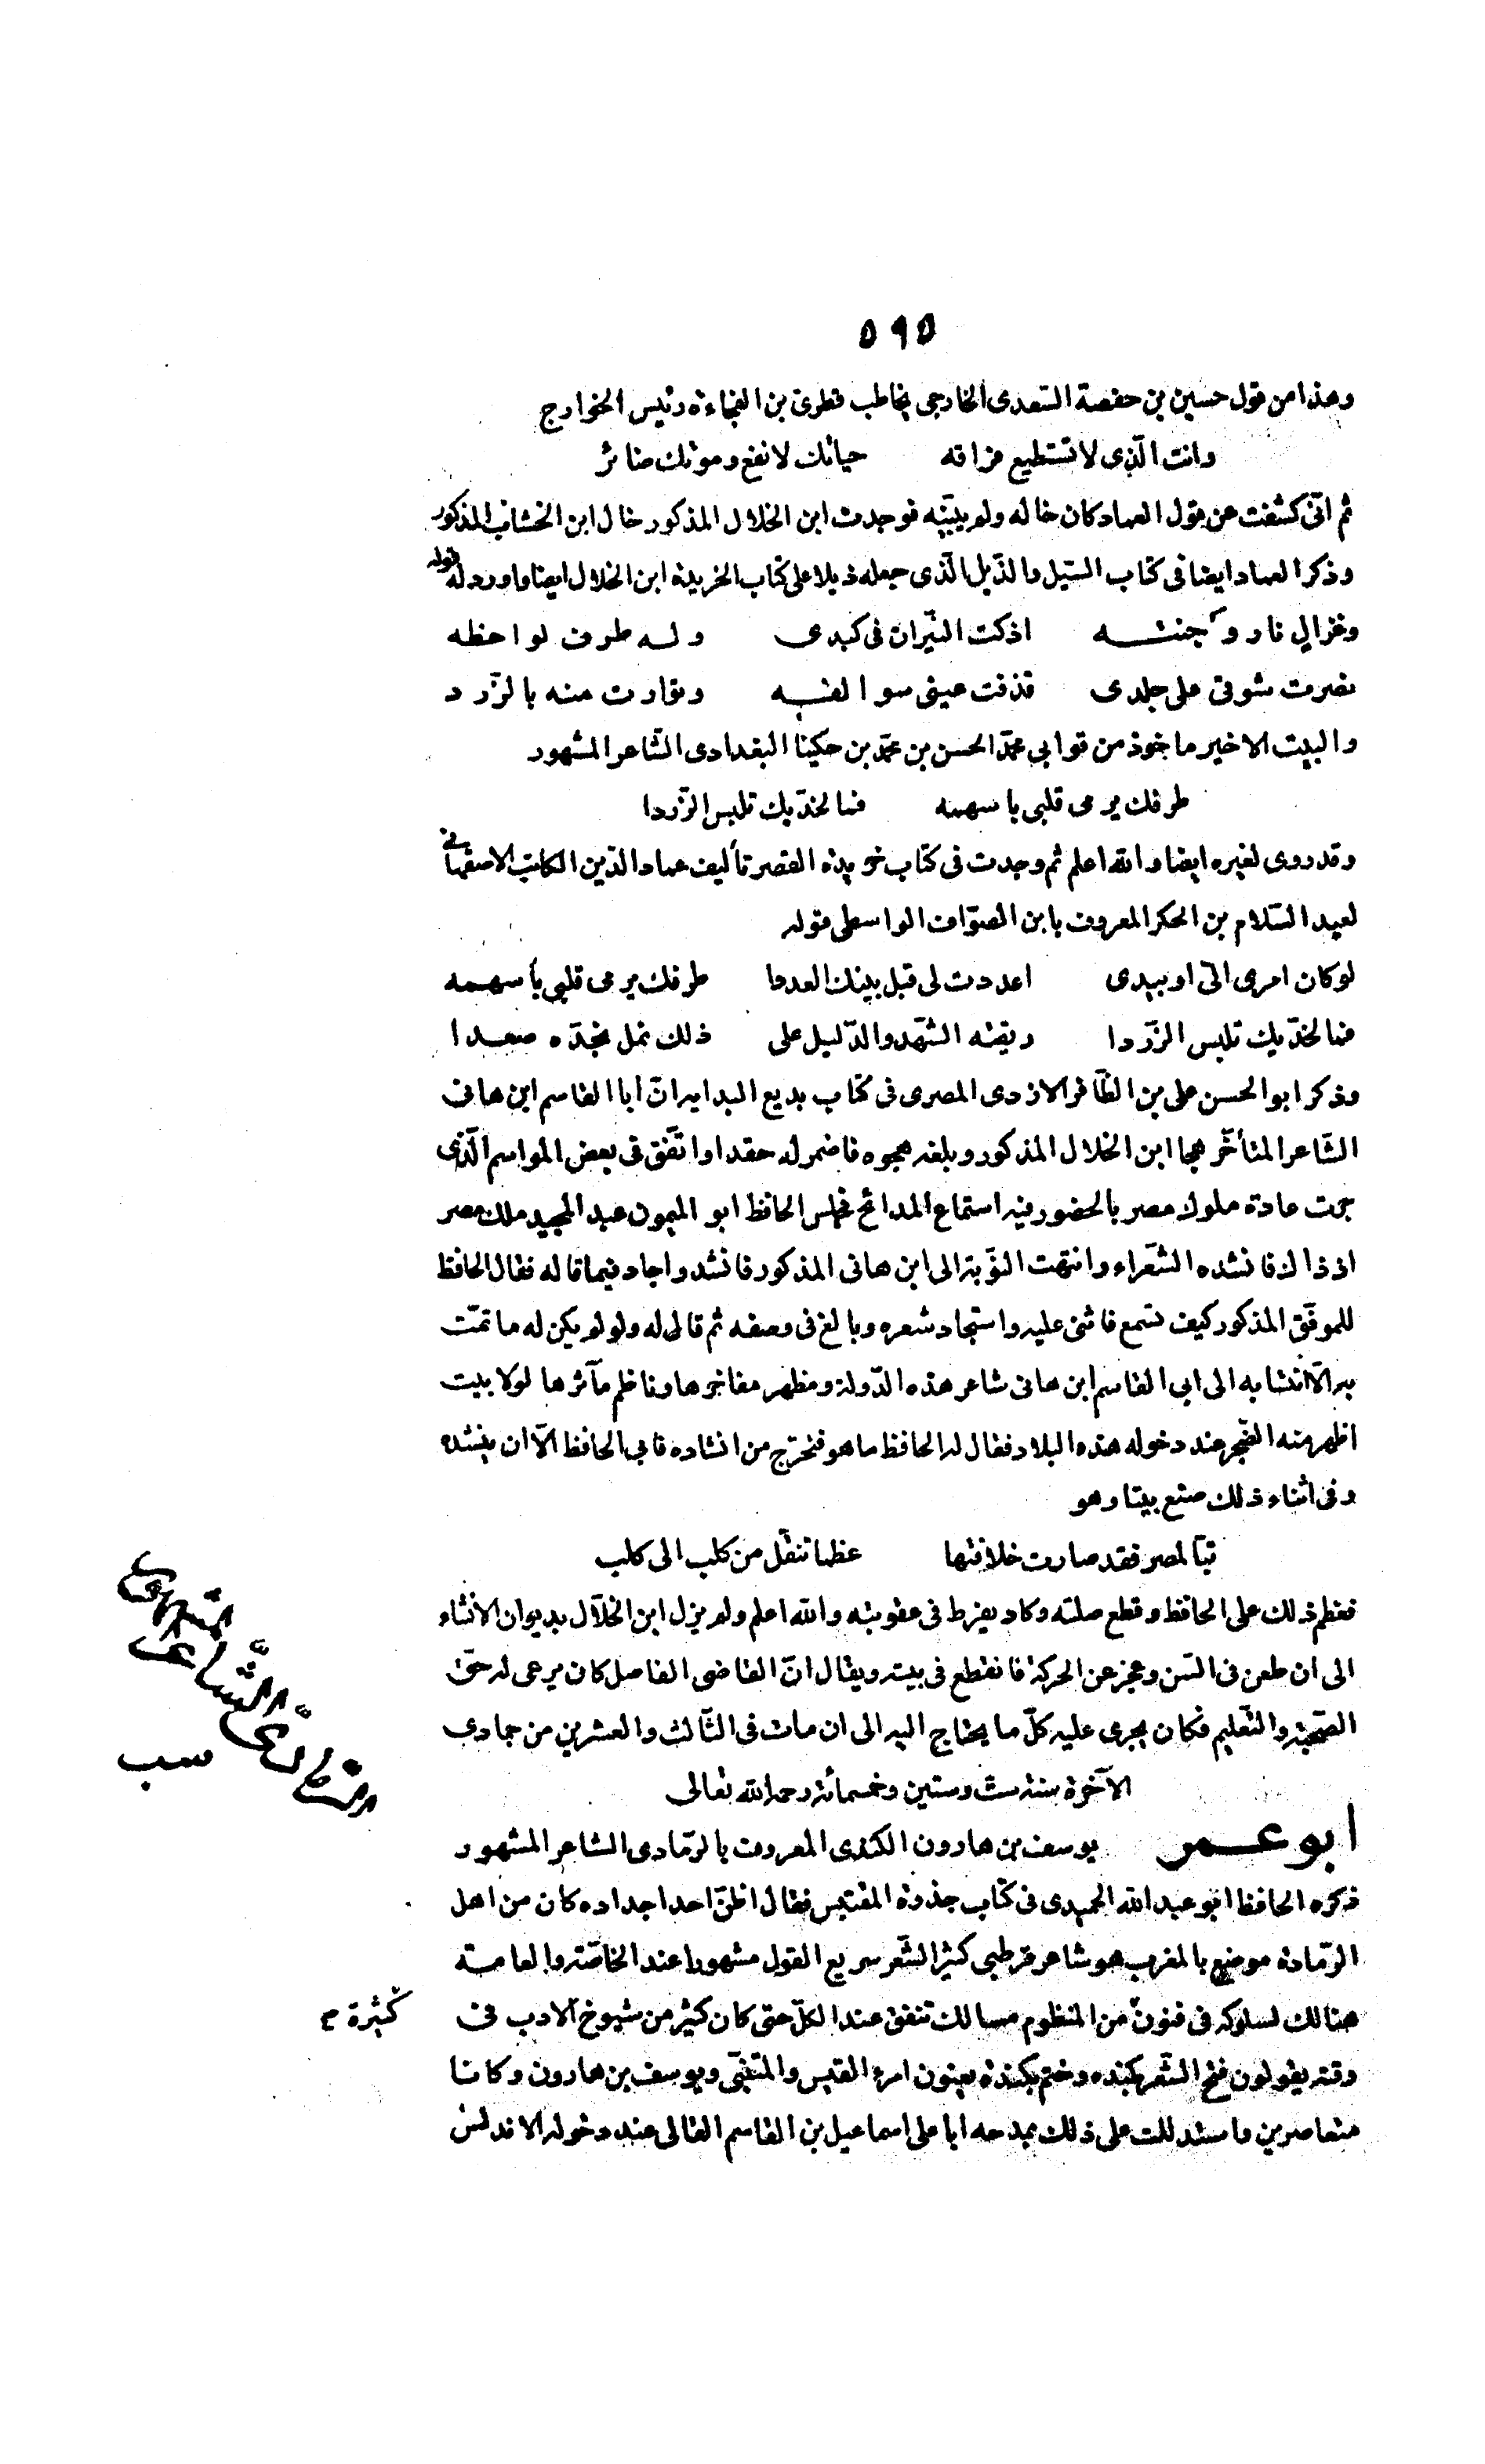 ٥٩٥
وهذا من قول حسين بن حفصة السّعدى الخارجى يخاطب قطرىّ بن الفجاءة رئيس الخوارج
وانت الّذى لا تستطيع فراقه حياتك لا نفع وموتك ضائر
ثم انّى كشفت عن قول العماد كان خاله ولم يبيّنه فوجدت ابن الخلال المذكور خال ابن الخشاب المذكور
وذكر العماد ايضا فى كتاب السّيل والذّيل الّذى جعله ذيلا على كتاب الخريدة ابن الخلال ايضا واورد له قوله
وغزال نار وجنته اذكت النّيران فى كبدى وله طرف لواحظه
نصرت شوقى على جلدى قذفت عينى سوالفه وتوارت منه بالزّرد
والبيت الاخير ماخوذ من قو ابى محمّد الحسن بن محمّد بن حكينا البغدادى الشّاعر المشهور
طرفك يرمى قلبى باسهمه فما لخدّيك تلبس الزّردا
وقد روى لغيره ايضا والله اعلم ثم وجدت فى كتاب خريدة القصر تأليف عماد الدّين الكاتب الاصفهانى
لعبد السّلام بن الحكم المعروف بابن الصوّاف الواسطى قوله
لو كان امرى الىّ او بيدى اعددت لى قبل بينك العددا طرفك يرمى قلبى بأسهمه
فما لخدّيك تلبس الزّردا ريقته الشّهد والدّليل على ذلك نمل بخدّه صعدا
وذكر ابو الحسن على بن الظّافر الازدى المصرى فى كتاب بديع البدايه انّ ابا القاسم ابن هانى
الشّاعر المتأخّر هجا ابن الخلال المذكور وبلغه هجوه فاضمر له حقدا واتّفق فى بعض المواسم الّذى
جرت عادة ملوك مصر بالحضور فيه استماع المدائح فجلس الحافظ ابو الميمون عبد المجيد ملك مصر
اذ ذاك فانشده الشّعراء وانتهت النّوبة الى ابن هانى المذكور فانشد واجاد فيما قاله فقال الحافظ
للموفّق المذكور كيف تسمع فاثنى عليه واستجاد شعره وبالغ فى وصفه ثم قال له ولو لم يكن له ما تمتّ
به الّا انتسابه الى ابى القاسم ابن هانى شاعر هذه الدّولة ومظهر مفاخرها وناظم مآثرها لولا بيت
اظهر منه الضّجر عند دخوله هذه البلاد فقال له الحافظ ما هو فتحرّج من انشاده فابى الحافظ الّا ان ينشده
وفى اثناء ذلك صنع بيتا وهو
تبّا لمصر فقد صارت خلافتها عظما تنقّل من كلب الى كلب
فعظم ذلك على الحافظ وقطع صلته وكاد يفرط فى عقوبته والله اعلم ولم يزل ابن الخلّال بديوان الانشاء
الى ان طعن فى السّن وعجز عن الحركة فانقطع فى بيته ويقال انّ القاضى الفاضل كان يرعى له حقّ
الصّحبة والتّعليم فكان يجرى عليه كلّ ما يحتاج اليه الى ان مات فى الثّالث والعشرين من جمادى
الآخرة سنة ستّ وستين وخمسمائة رحمه الله تعالى
ابو عمر يوسف بن هارون الكندى المعروف بالرّمادى الشاعر المشهور
ذكره الحافظ ابو عبد الله الحميدى فى كتاب جذوة المقتبس فقال اظنّ احد اجداده كان من اهل
الرّمادة موضع بالمغرب هو شاعر قرطبى كثير الشّعر سريع القول مشهورا عند الخاصّة والعامة
هنالك لسلوكه فى فنون من المنظوم مسالك تنفق عند الكلّ حتى كان كثير من شيوخ الادب فى
وقته يقولون فتح الشّعر بكنده وختم بكندة يعنون امرء القيس والمتنبّى ويوسف بن هارون وكانا
متعاصرين واستدللت على ذلك بمدحه ابا على اسماعيل بن القاسم القالى عند دخوله الاندلس
الشّاعر
المشهور
كثيرة